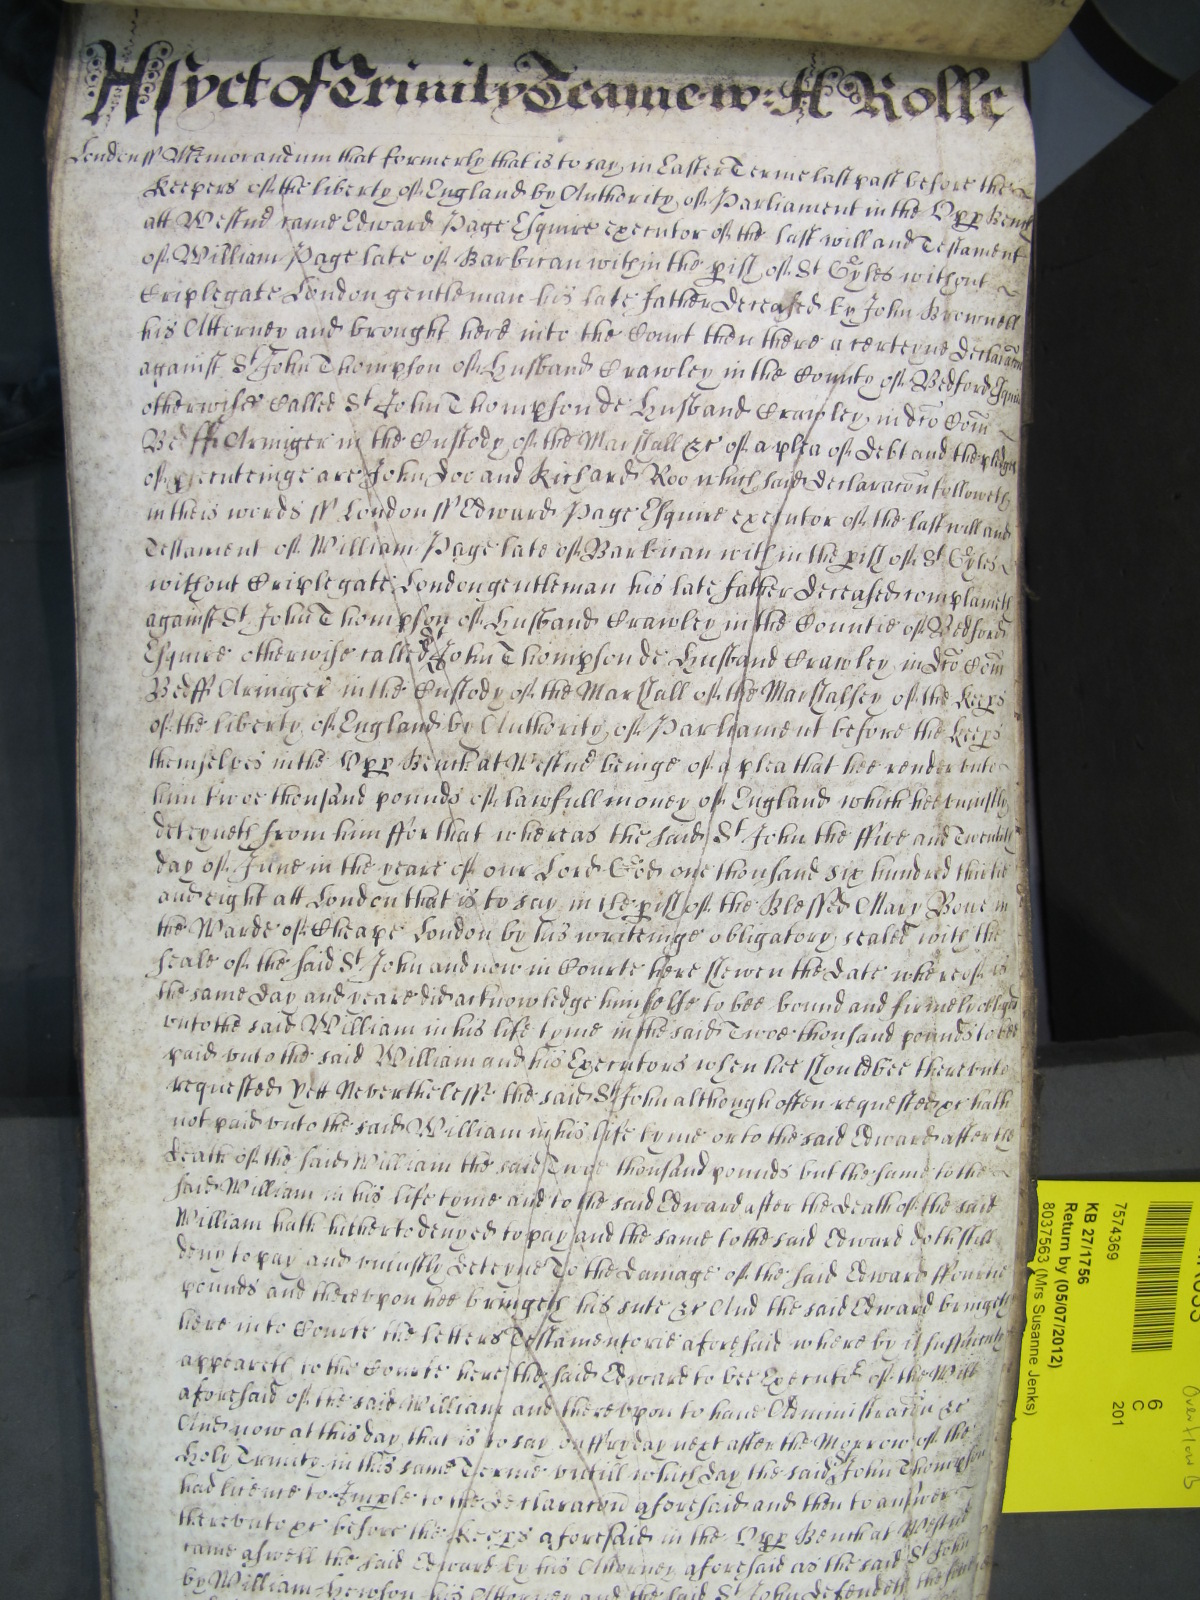 As yet of Trinity Tearme w: H Rolle
London ss Memorandum that formerly that is to say in Easter Terme last past before the
Keepers of the liberty of England by Authority of Parliament in the Upp Bench
att Westmr came Edward Page Esquire executor of the last will and Testament
of William Page late of Barbican within the pish of St Gyles without
Criplegate London gentleman his late father deceased by John Brownell
his Attorney and brought here into the Court then there a certeyne declaracon
against St John Thompson of Husband Crawley in the County of Bedford Esquire
otherwise Called St John Thompson de Husband Crawley in dco Com
Bedff Armiger in the Custody of the Marshall &c of a plea of debt and the pledges
of prosecuteinge are John Doo and Richard Roo which said declaracon followeth
in theis words ss London ss Edward Page Esquire executor of the last will and
Testament of William Page late of Barbican within the pish of St Gyles
without Criplegate London gentleman his late father deceased complaineth
against St John Thompson of Husband Crawley in the Countie of Bedford
Esquire otherwise called St John Thompson de Husband Crawley in dco Com
Bedff Armiger in the Custody of the Marshall of the Marshalsey of the Keeps
of the liberty of England by Authority of Parliament before the keeps
themselves in the Upp Bench at Westmr beinge of a plea that hee render unto
him twoe thousand pounds of lawfull money of England which hee uniustly
deteyneth from him ffor that whereas the said St John the ffive and Twentith
day of June in the yeare of our Lord God one thousand six hundred thirtie
and eight att London that is to say in the pish of the Blessed Mary Bowe in
the Warde of Cheape London by his writeinge obligatory sealed with the
seale of the said St John and now in Courte here shewen the date whereof is
the same day and yeare did acknowledge himselfe to bee bound and firmely obliged
unto the said William in his life tyme in the said Twoe thousand pounds to bee
paid unto the said William and his Executors when hee should bee thereunto
requested Yett Neverthelesse the said St John although often requested &c hath
not paid unto the said William in his life tyme or to the said Edward after the
death of the said William the said Twoe thousand pounds but the same to the
said William in his life tyme and to the said Edward after the death of the said
William hath hitherto denyed to pay and the same to the said Edward doth still
deny to pay and uniustly deteyne To the damage of the said Edward ffourtie
pounds and thereupon hee bringeth his sute &c And the said Edward bringeth
here into Courte the letters Testamentorie aforesaid whereby it sufficiently
appeareth to the Courte here the said Edward to bee Executor of the Will
aforesaid of the said William and thereupon to have Administracon &c
And now at this day that is to say on ffryday next after the Morrow of the
Holy Trinity in this same Terme untill which day the said St John Thompson
had licence to Imple to the declaracon aforesaid and then to answer
thereunto &c before the Keeps aforesaid in the Upp Bench at Westmr
came aswell the said Edward by his Attorney aforesaid as the said St John
by William Hewson his Attorney and the said St John defendeth the force
7574369
KB 27/1756
Return by (05/07/2012)
8037563 (Mrs Susanne Jenks)
6
C
201
Over How B